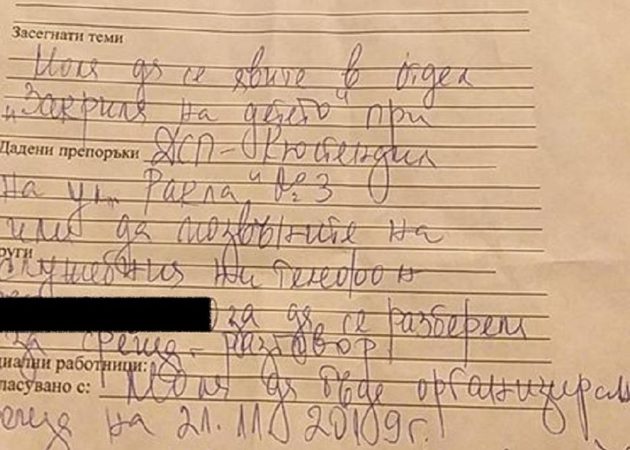 Засегнати теми
Моля да се явите в отдел
„Закрила на детето" при
Дадени препоръки ДСП - Кюстендил
на ул. „Ракла" № 3
или да позвъните на
руги
служебния ми телефон
за да се разберем
за среща - разговор
циални работници:
гласувано с: Моля да бъде организирана
среща на 21.11.2019г.